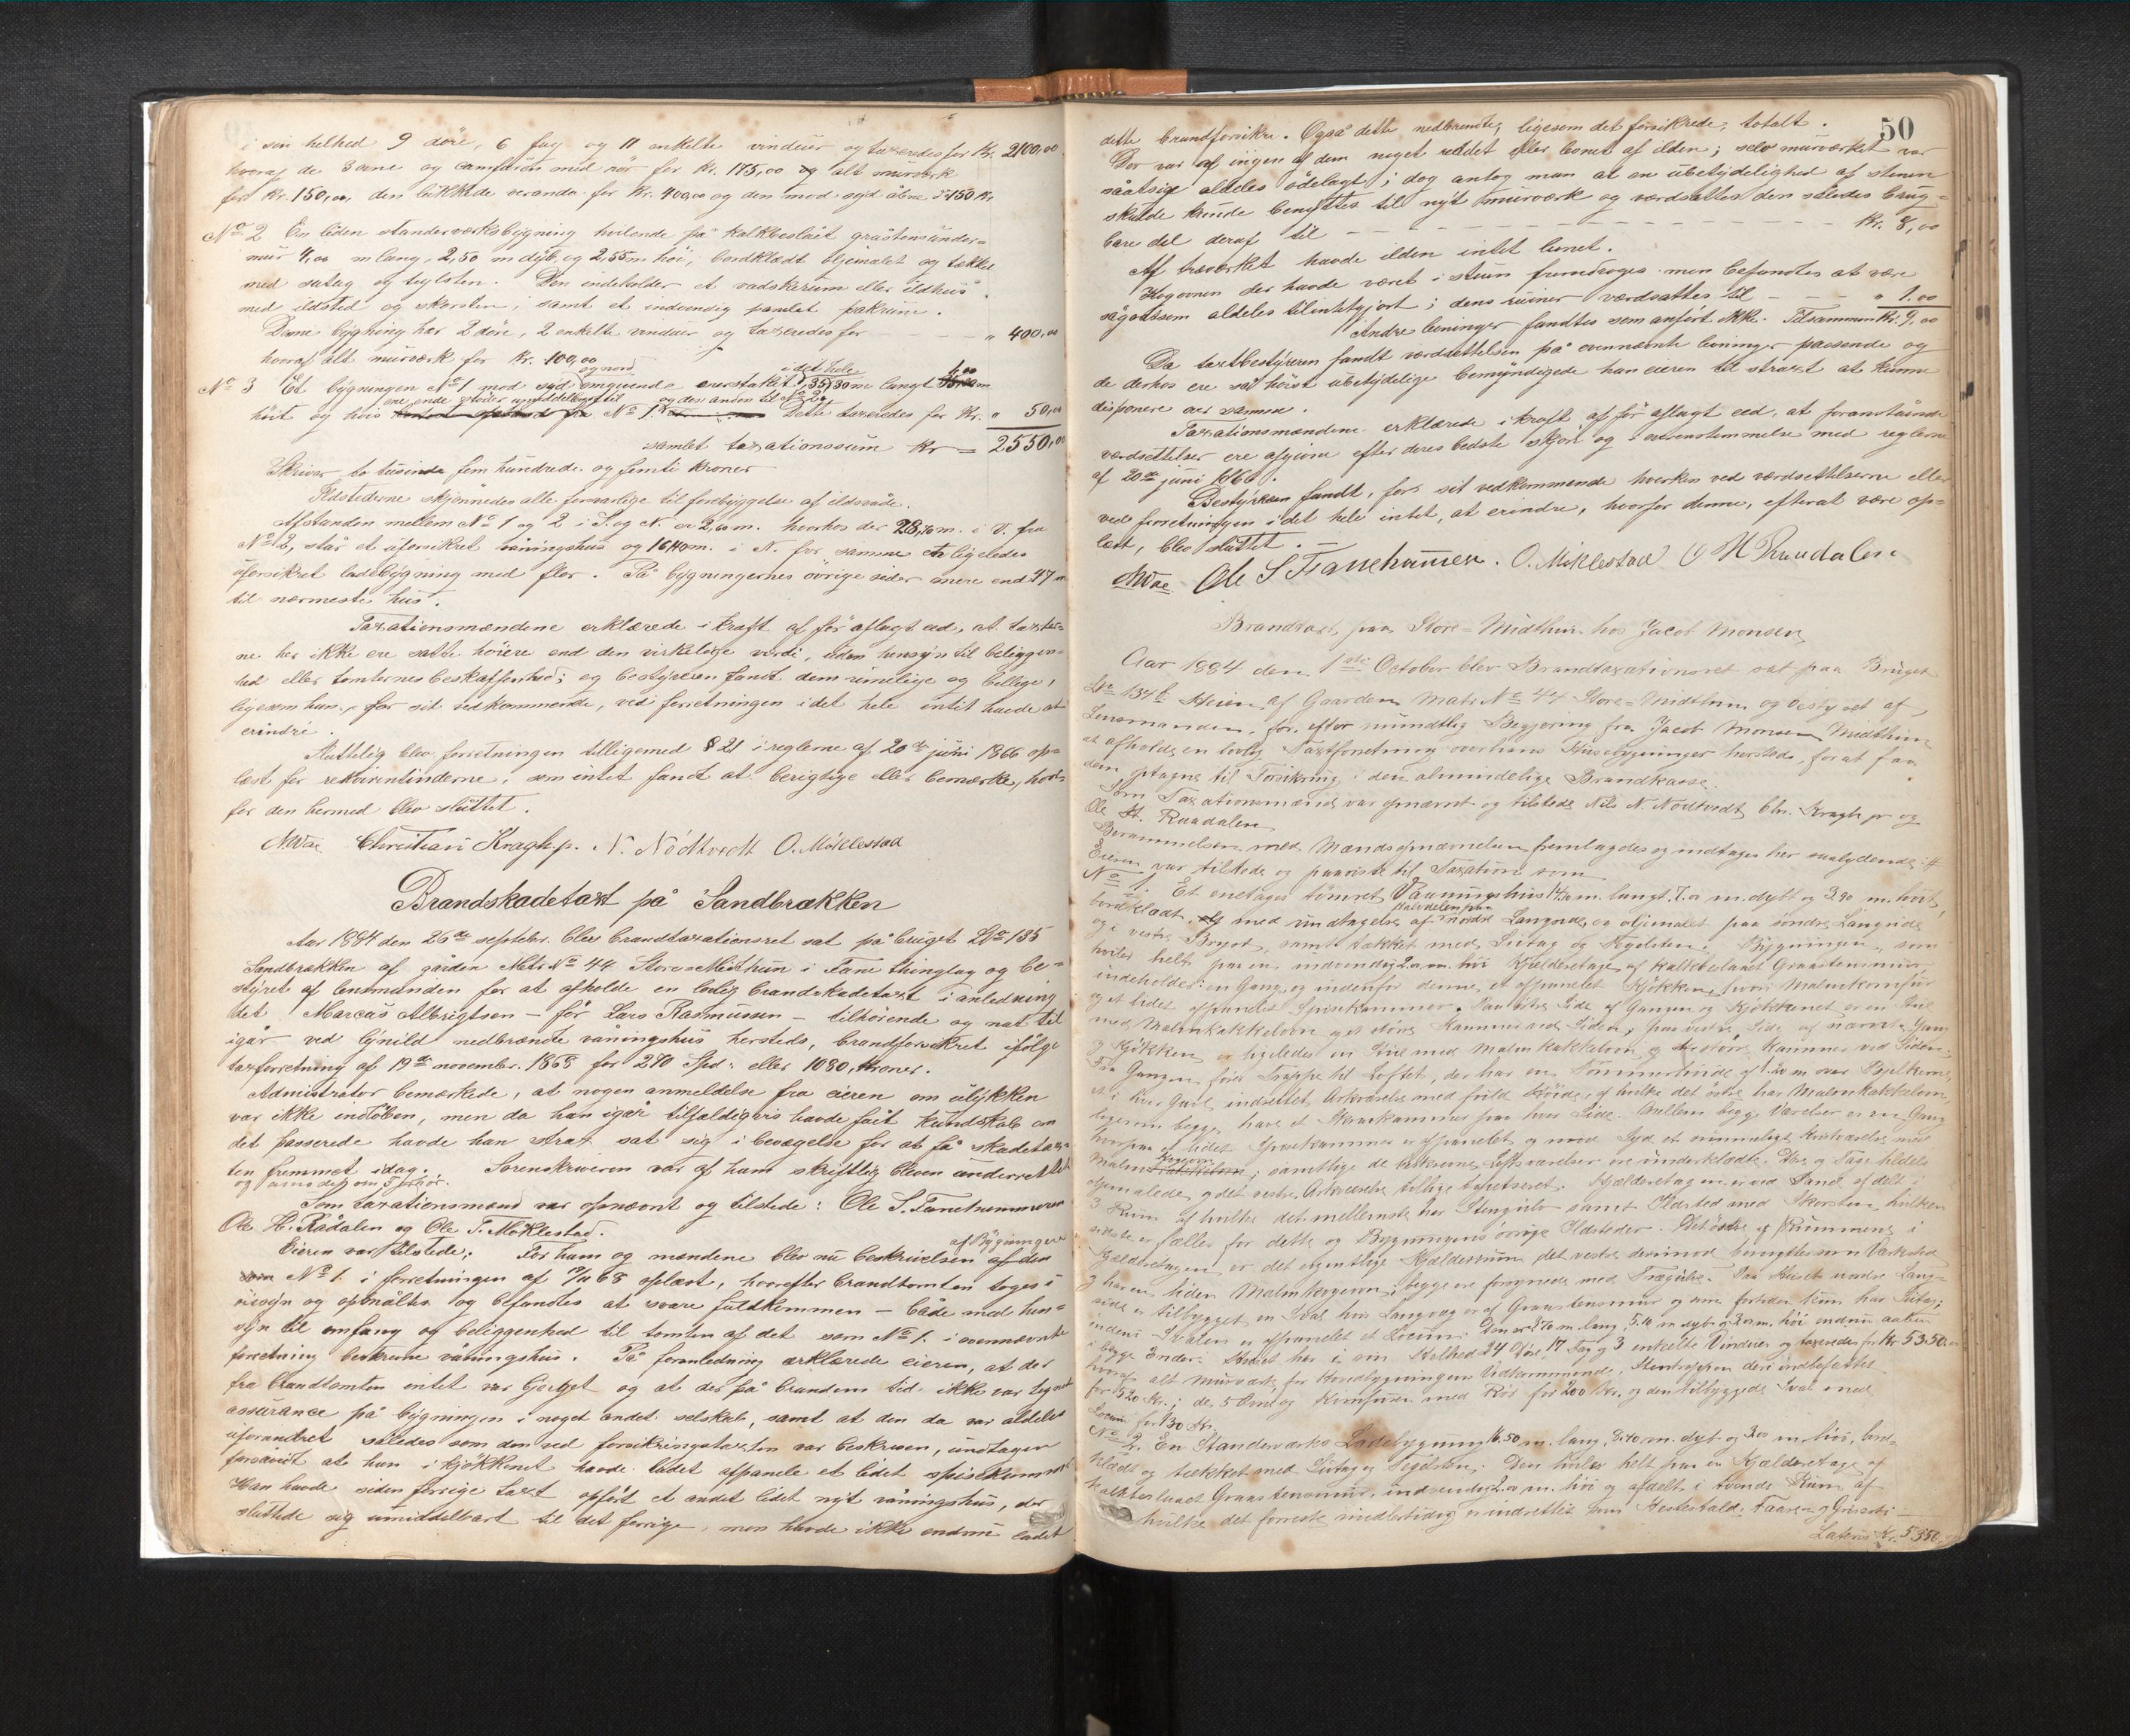 i sin helhed 9 døre, 6 fag og 11 enkelte vinduer og taxeredes for Kr. 2100,00
hvoraf de 3 ovne og camfuren med rør for Kr. 175,00 og alt murværk
for Kr. 150,00, den bikkede veranda for Kr. 400,00 og den mod syd åbne d° 150 Kr.
No 2 En liden standerværksbygning hvilende på kalkbeslået gråstensunder=
mur 4,00 m lang, 2,50 m dyb, og 2,55 m høi, bordklædt oljemalet og tækket
med sutag og teglsten. Den indeholder et vadskerum eller ildhus
med ildsted og skorsten, samt et indvendig panelet pakrum.
Denne bygning har 2 døre, 2 enkelte vinduer og taxeredes for — — „ 400,00
hvoraf alt murværk for Kr. 100,00
og nord i det hele 1,00
No 3 Et bygningen No 1 mod syd omgivende enerstakit, 35,30 m langt
ene ende støder umiddelbart til og den anden til No 2.
høit og hvis No 1 Dette taxeredes for Kr. „ 50,00
samlet taxationssum Kr = 2550,00
Skriver to tusinde fem hundrede og femti kroner
Ildstederne skjønnedes alle forsvarlige til forebyggelse af ildsvåde.
Afstanden mellem No 1 og 2 i S. og N. er 2,60 m. hvorhos der 28,70 m. i V. fra
No 2, står et uforsikret våningshus og 16,40 m. i N. for samme et ligeledes
uforsikret ladebygning med flor. På bygningernes øvrige sider mere end 47 m
til nærmeste hus.
Taxationsmændene erklærede i kraft af før aflagt ed, at taxter=
ne her ikke ere satte høiere end den virkelige værdi, uden hensyn til beliggen=
hed eller tomternes beskaffenhed; og bestyreren fandt dem rimelige og billige,
ligesom han, for sit vedkommende, ved forretningen i det hele intet havde at
erindre.
Sluttelig blev forretningen tilligemed § 21 i reglerne af 20de juni 1866 op=
læst for rekvirentinderne, som intet fandt at berigtige eller bemærke, hvor=
for den hermed blev sluttet.
Christian Kragh p. N. Nødtvedt O. Miklestad
Brandskadetaxt på Sandbrækken
Aar 1884 den 26de septebr. blev brandtaxationsret sat på bruget LNo 135
Sandbrækken af gården Matr No 44 Store-Midthun i Fane thinglag og be=
styret af lensmanden for at afholde en lovlig brandskadetaxt i anledning
det Marcus Albrigtsen – før Lars Rasmussen – tilhørende og nat til
igår ved lynild nedbrændte våningshus hersteds, brandforsikret ifølge
taxforretning af 19de november 1868 for 270 Spd: eller 1080, kroner.
Administrator bemærkede, at nogen anmeldelse fra eieren om ulykken
var ikke indløben, men da han igår tilfældigvis havde fået kundskab om
det passerede havde han strax sat sig i bevægelse for at få skadetax=
ten fremmet idag. Sorenskriveren var af ham skriftlig bleven underrettet
og anmodet om forhør.
Som taxationsmænd var opnævnt og tilstede: Ole S. Fanehammeren
Ole H. Rådalen og Ole T. Møklestad.
af Bygningen
Eieren var tilstede. For ham og mændene blev nu beskrivelsen af den
No 1. i forretningen af 19/11 68 oplæst, hvorefter brandtomten toges i
øiesyn og opmåltes og befandtes at svare fuldkommen – både med hen=
syn til omfang og beliggenhed til tomten af det som No 1. i ovennævnte
forretning beskrevne våningshus. På foranledning erklærede eieren, at der
fra brandtomten intet var bjerget og at der på brandens tid ikke var tegnet
assurance på bygningen i noget andet selskab, samt at den da var aldeles
uforandret således som den ved forsikringstaxten var beskreven, undtagen
forsåvidt at han i kjøkkenet havde ladet afpanele et lidet spisekammer
Han havde siden forrige taxt opført et andet lidet nyt våningshus, der
sluttede sig umiddelbart til det forrige, men havde ikke endnu ladet
50
dette brandforsikre. Også dette nedbrændte, ligesom det forsikrede, totalt.
Der var af ingen af dem noget reddet eller levnet af ilden; selv murværket var
saatsige aldeles ødelagt; dog antog man at en ubetydelighed af stenen
skulde kunde benyttes til nyt murværk og værdsattes den således brug=
bare del deraf til — — — — — Kr. 8,00
Af træværket havde ilden intet levnet.
Kogeovnen der havde været i stuen fremdroges men befandtes at være
sågodtsom aldeles tilintetgjort; dens ruiner værdsattes til — — „ 1.00
Andre levninger fandtes som anført ikke. Tilsammen Kr. 9,00
Da taxtbestyreren fandt værdsettelsen på ovennævnte levninger passende og
de derhos ere så høist ubetydelige bemyndigede han eieren til straxt at kunne
disponere over samme.
Taxationsmændene erklærede i kraft af før aflagt eed, at foranstående
værdsettelser ere afgivne efter deres bedste skjøn og i overensstemmelse med reglerne
af 20de juni 1866.
Bestyreren fandt, for sit vedkommende hverken ved værdsettelserne eller
ved forretningen i det hele intet, at erindre, hvorfor denne, efterat være op=
læst, blev sluttet.
Ole S Fanehammer. O. Miklestad O H Raadalen
Brandtaxt paa Store-Midthun hos Jacob Monsen
Aar 1884 den 1ste October blev Brandtaxationsret sat paa Bruget
LNo 134 b Heien af Gaarden Matr No 44 Store-Midthun og bestyret af
Lensmanden, for, efter mundtlig Begjering fra Jacob Monsen Midthun
at afholde en lovlig Taxtforretning over hans Husebygninger hersteds, for at faa
dem optagne til Forsikring i den almindelige Brandkasse.
Som Taxationsmænd var opnævnt og tilstede Nils N. Nødtvedt, Chr. Kragh pr og
Ole H. Raadalen
Berammelsen med Mændsopnævnelsen fremlagdes og indtages her saalydende: #
Eieren var tilstede og paaviste til Taxation som
No 1. Et enetages tømret Vaaningshus 14,10 m. langt, 7.00 m. dybt og 3.90 m. høit,
Halvdelen paa
bordklædt, med undtagelse af nordre Langvæg, og oljemalet paa søndre Langside
og i vestre Brøst, samt tækket med Sutag og Teglsten. Bygningen, som
hviler helt paa en indvendig 2.00 m. høi Kjælderetage af kalkbeslaaet Graastensmur
indeholder: en Gang og indenfor denne et afpanelet Kjøkken, hvori Malmkomfur
og et lidet afpanelet Spisekammer. Paa østre Side af Gangen og Kjøkkenet er en Stue
med Malmkakkelovn og et større Kammer ved Siden, paa vestre Side af nævnte Gang
og Kjøkken er ligeledes en Stue med Malmkakkelovn og større Kammer ved Siden.
Fra Gangen fører Trappe til Loftet, der har en Tømmerhøide af 1.20 m. over Bjelkerne,
et i hver Gavl indrettet Arkværelse med fuld Høide, af hvilke det østre har Malmkakkelovn,
ligesom begge have et Skraakammer paa hver Side. Mellem begge Værelser er en Gang
hvorpaa et lidet Spisekammer er afpanelet og mod Syd et rummeligt Kvistværelse med
Kogeovn
Malm ; samtlige de beskrevne Loftsværelser ere underklædte. Hus og Tage tildels
oljemalede, og det vestre Arkværelse tillige tapetseret. Kjælderetagen er ved Panel afdelt i
3 Rum af hvilke det mellemste har Stengulv samt Ildsted med Skorsten, hvilken
sidste er fælles for dette og Bygningens øvrige Ildsteder. Det østre af Rummene i
Kjælderetagen er det egentlige Kjælderrum, det vestre derimod benyttes som Værksted
og har en liden Malmkogeovn; begge ere forsynede med Trægulve. Paa Huset nordre Lang=
side er tilbygget en Sval hvis Langvæg er af Graastensmur og som forøvrigt kun har Sutag;
indeni Svalen er afpanelet et Locum. Den er 3.70 m. lang, 5.10 m. dyb og 2.20 m. høi endnu aaben
i begge Ender. Huset har i sin Helhed 24 Døre, 17 Fag og 3 enkelte Vinduer og taxeredes for Kr. 5350.00
hvoraf alt Murværk, for Hovedbygningens Vedkommende, Stentrappen deri indbefattet
for 520 Kr.; de 5 Ovne og Komfuren med Rør for 200 Kr. og den tilbyggede Sval med
Locum for 130 Kr.
No 2. En Standerværks Ladebygning 16.50 m. lang, 8.40 m. dyb og 3.00 m. høi, bord=
klædt og tækket med Sutag og Teglsten. Den hviler helt paa en Kjælderetage af
kalkbeslaaet Graastensmur, indvendig 2.00 m. høi og afdelt i tvende Rum af
hvilke det forreste midlertidig er indrettet som Hestestald, Faare- og Grisesti –
Lateris Kr. 5350.